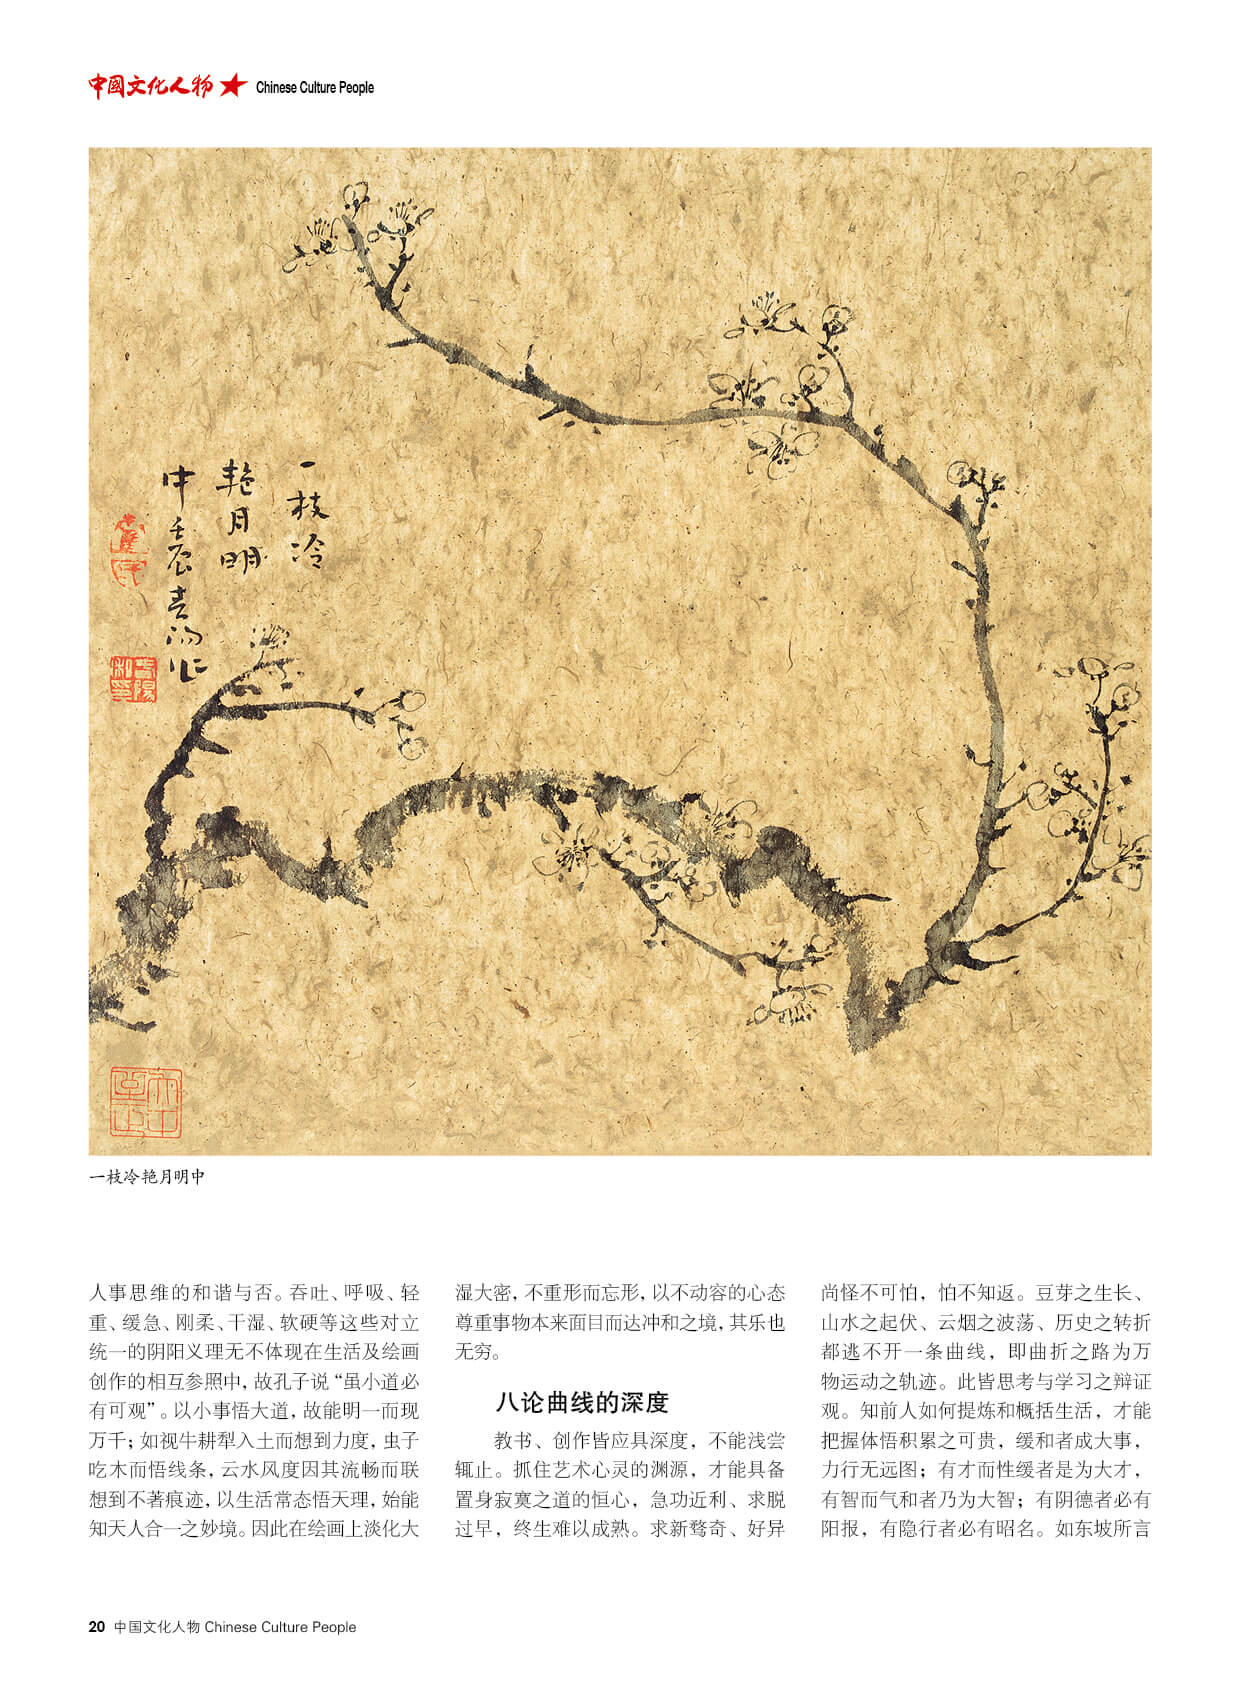 中國文化人物 Chinese Culture People
一枝冷
艳月明
中 壬辰 春阳作
一枝冷艳月明中
人事思维的和谐与否。吞吐、呼吸、轻
重、缓急、刚柔、干湿、软硬等这些对立
统一的阴阳义理无不体现在生活及绘画
创作的相互参照中，故孔子说“虽小道必
有可观”。以小事悟大道，故能明一而现
万千；如视牛耕犁入土而想到力度，虫子
吃木而悟线条，云水风度因其流畅而联
想到不著痕迹，以生活常态悟天理，始能
知天人合一之妙境。因此在绘画上淡化大
湿大密，不重形而忘形，以不动容的心态
尊重事物本来面目而达冲和之境，其乐也
无穷。
八论曲线的深度
教书、创作皆应具深度，不能浅尝
辄止。抓住艺术心灵的渊源，才能具备
置身寂寞之道的恒心，急功近利、求脱
过早，终生难以成熟。求新骛奇、好异
尚怪不可怕，怕不知返。豆芽之生长、
山水之起伏、云烟之波荡、历史之转折
都逃不开一条曲线，即曲折之路为万
物运动之轨迹。此皆思考与学习之辩证
观。知前人如何提炼和概括生活，才能
把握体悟积累之可贵，缓和者成大事，
力行无远图；有才而性缓者是为大才，
有智而气和者乃为大智；有阴德者必有
阳报，有隐行者必有昭名。如东坡所言
20 中国文化人物 Chinese Culture People